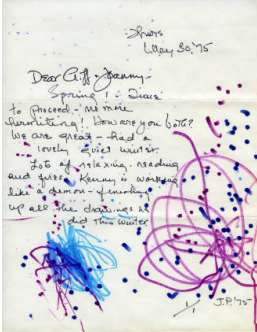 May 30, '75
Dear Giff & Joanny -
Spring! - Time
to proceed - no more
hermiting! How are you both?
We are great - had a
lovely quiet winter.
Lots of relaxing, reading
and quiet. Kenny is working
like a demon - finishing
up all the drawings he
did this winter.
J.P. '75